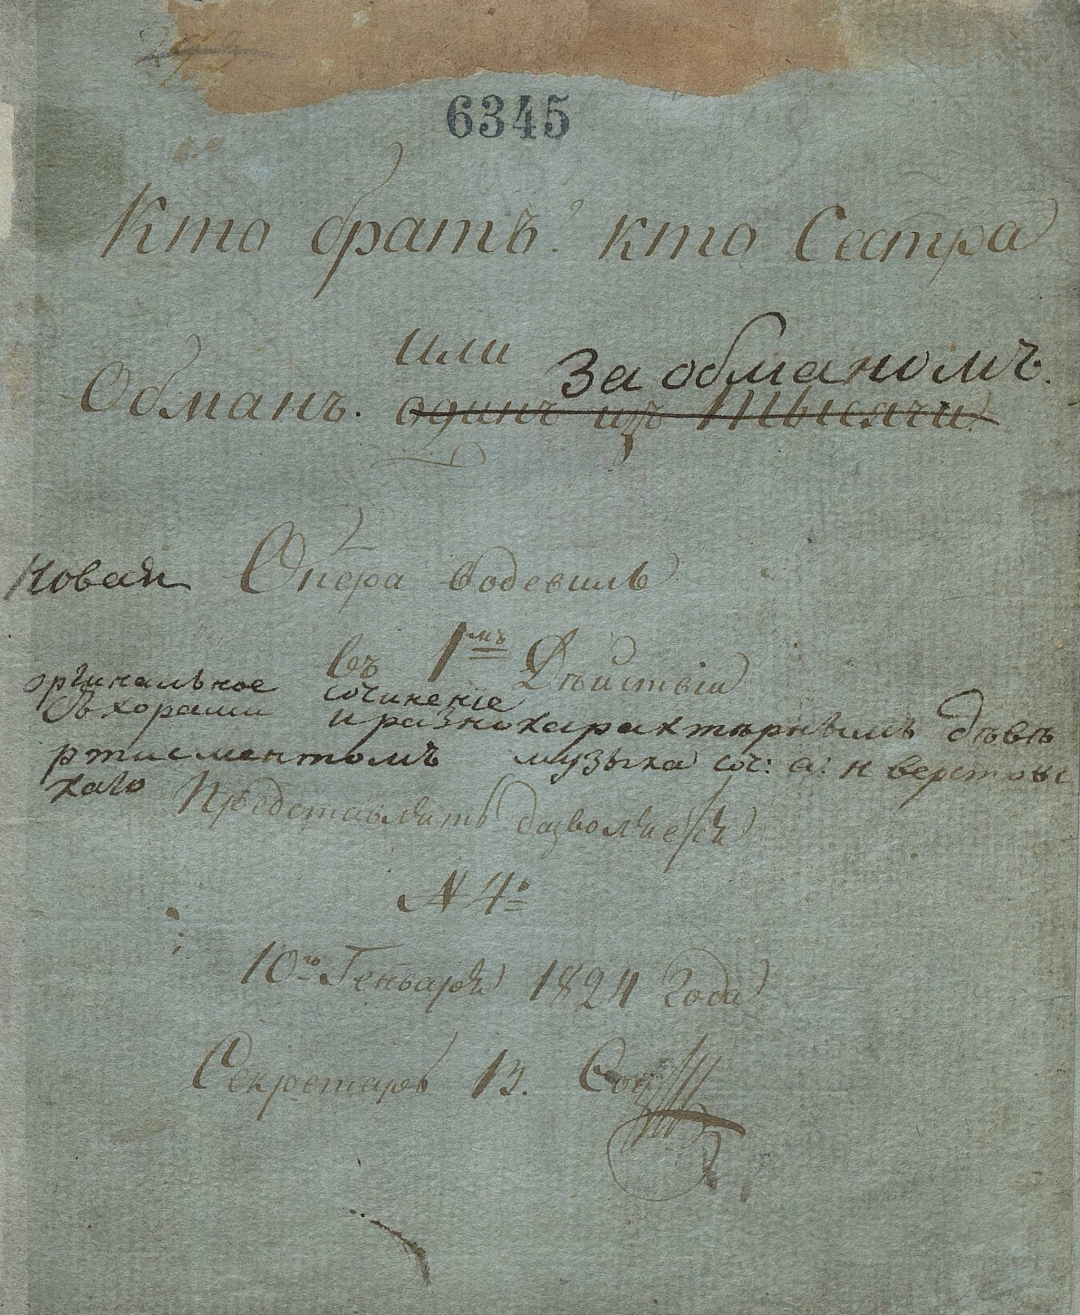 6345
Кто братъ? кто Сестра
или
За обманомъ.
Обманъ. одинъ изъ тысячи
Новая Опера водевиль
въ 1мъ Дѣйствіи
оргинальное сочиненіе
съ хорами и разнохарактѣрнымъ дѣвѣ
ртисментомъ музыка соч: а: н верстовс
каго
Представлять дозволяется
N 4:
10го Генваря 1824 Года
Секретарь В. Соц